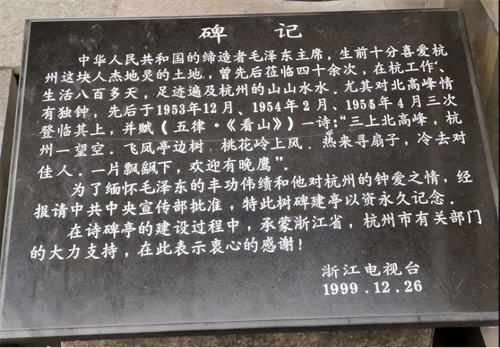 碑记
中华人民共和国的缔造者毛泽东主席，生前十分喜爱杭
州这块人杰地灵的土地，曾先后莅临四十余次，在杭工作、
生活八百多天，足迹遍及杭州的山山水水．尤其对北高峰情
有独钟，先后于1953年12月、1954年2月、1955年4月三次
登临其上，并赋（五律·《看山》）一诗：“三上北高峰，杭
州一望空．飞凤亭边树，桃花岭上风．热来寻扇子，冷去对
佳人．一片飘飖下，欢迎有晚鹰”．
为了缅怀毛泽东的丰功伟绩和他对杭州的钟爱之情，经
报请中共中央宣传部批准，特此树碑建亭以资永久记念．
在诗碑亭的建设过程中，承蒙浙江省，杭州市有关部门
的大力支持，在此表示衷心的感谢！
浙江电视台
1999.12.26